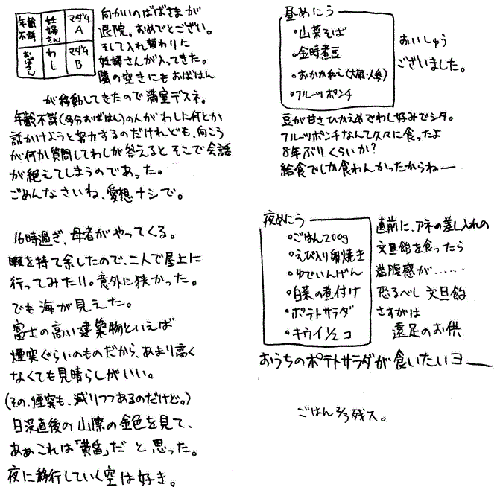 年齢不詳
妊婦さん
マダムA
おばさん
わし
マダムB
向かいのばばさまが
退院。おめでとござい。
そして入れ替わりに
妊婦さんが入ってきた。
隣の空きにもおばはん
が移動してきたので満室デスネ。
年齢不詳(多分おばはん)のんがわしに何とか
話かけようと努力するのだけれども、向こう
が何か質問してわしが答えるとそこで会話
が絶えてしまうのであった。
ごめんなさいね、愛想ナシで。
16時過ぎ、母君がやってくる。
暇を持て余したので、二人で屋上に
行ってみたり。意外に狭かった。
でも海が見えた。
富士の高い建築物といえば
煙突ぐらいのものだから、あまり高く
なくても見晴らしがいい。
(その煙突も、減りつつあるのだけど。)
日没直後の山際の金色を見て、
ああこれは「黄昏」だ と思った。
夜に移行していく空は好き。
昼めにう
・山菜そば
・金時煮豆
・おかか和え(大根・人参)
・フルーツポンチ
おいしゅう
ございました。
豆が甘さひかえめでわし好みでシタ。
フルーツポンチなんて久々に食ったよ
8年ぶりくらいか?
給食でしか食わんかったからねー
夜めにう
・ごはん200g
・えび入り卵焼き
・ゆでいんげん
・白菜の煮付け
・ポテトサラダ
・キウイ1/2コ
直前に、アネの差し入れの
文旦飴を食ったら
満腹感が……
恐るべし文旦飴
さすがは
遠足のお供
おうちのポテトサラダが食いたいヨー
ごはん2/3残ス。